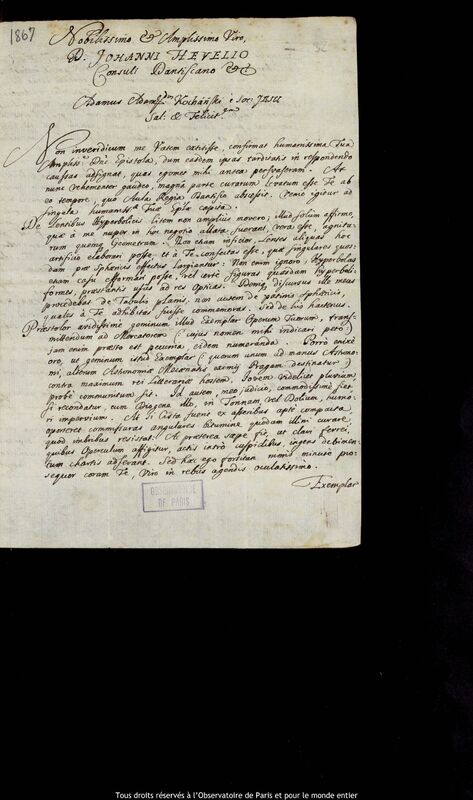 1867
32
Nobilissimo & Amplissimo Viro,
D. JOHANNI HEVELIO
Consuli Dantiscano &c
Adamus Adam Kochański è Soc JESU
Sal: & Felicit
Non inveridicum me Vatem extitisse, confirmat humanissima Tua
Ampliss Dñe Epistola, dum easdem ipsas tarditatis in respondendo
caussas assignat, quas egomet mihi antea persuaseram. At
nunc vehementer gaudeo, magna parte curarum levatum esse Te ab
eo tempore, quo Aula Regia Dantisco abscessit. Venio igitur ad
singula humaniss Tuæ Eplæ capita.
De Lentibus Hyperbolicis litem non amplius movero; illud solum affirmo,
quæ à me nuper in hoc negotio allata fuerant, vera esse, agnitu-
rum quemq Geometram. Non etiam inficior, Lentes aliquas hoc
artificio elaborari posse, et à Te confectas esse, quæ singulares quos-
dam præ Sphæricis effectus largiantur. Non enim ignoro, Hyperbolas
etiam casu efformari posse, vel certè figuras quasdam hyperboli-
formes, præstantis usûs ad res Opticas. Deniq discursus ille meus
procedebat de Tabulis planis, non autem de patinis Sphæricis,
quales à Te adhibitas fuisse commemoras. Sed de his hactenus.
Præstolor avidissime geminum illud Exemplar Operum Tuorum, trans-
mittendum ad Mercatorem (cujus nomen mihi indicari peto)
jam enim præsto est pecunia, eidem numeranda. Porrò enixè
oro, ut geminum istud Exemplar (quorum unum ad manus Astrono-
mi, alterum Astronomiæ Mecænatis eximij Pragam destinatur)
contra maximum rei Litterariæ hostem, Jovem videlicet pluvium
probè communitum fit. Id autem, meo judicio, commodissimè fiet
si recondatur, cum Diogene illo, in Tonnam, vel Dolium, humo-
ri impervium. At si Cista fuerit ex asseribus apte compacta,
oporteret commissuras angulares bitumine quodam illini curare,
quod imbribus resistat: At præterea sæpe fit, ut clavi ferrei,
quibus Operculum affigitur, actis intrò cuspidibus, ingens detrimen-
tum chartis adferant. Sed hæc ego fortitan nimis minutè pro-
sequor coram Te, Viro in rebus agendis oculatissimo.
Exemplar
OBSERVATOIRE
DE PARIS
Tous droits réservés à l'Observatoire de Paris et pour le monde entier